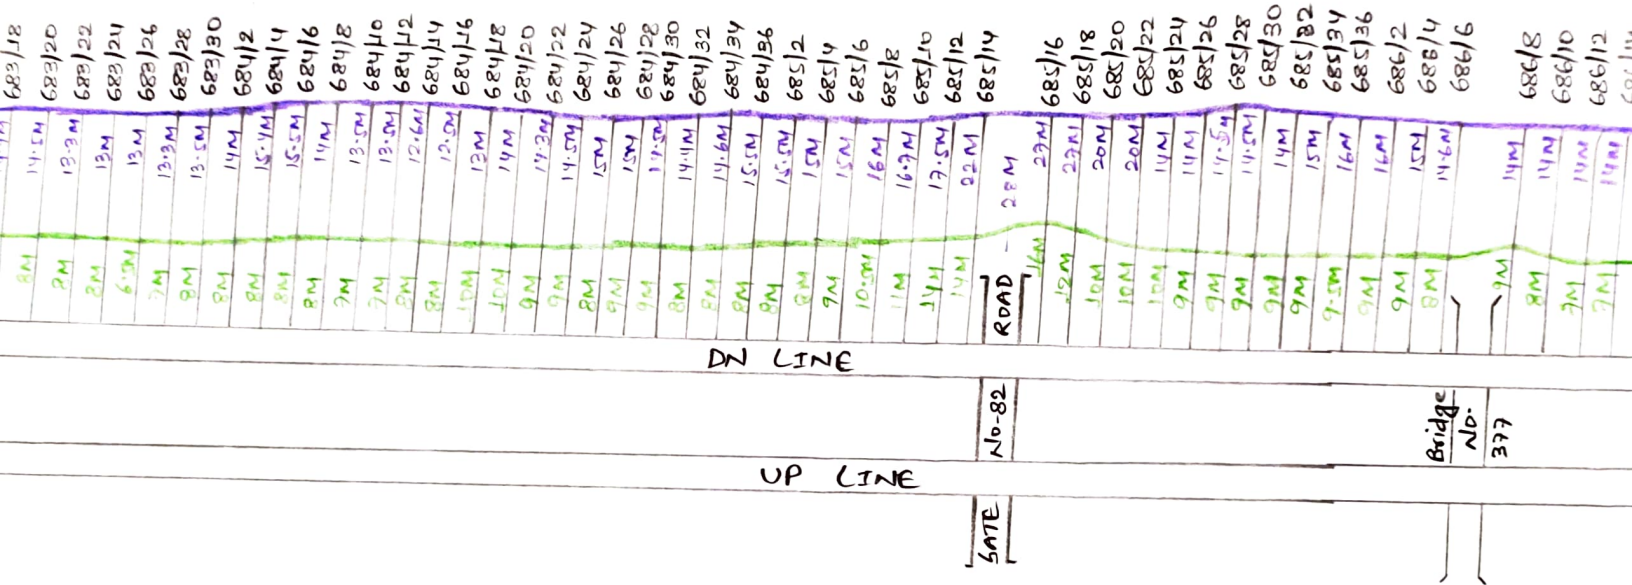 683/18 683/20 683/22 683/24 683/26 683/28 683/30 684/2 684/4 684/6 684/8 684/10 684/12 684/14 684/16 684/18 684/20 684/22 684/24 684/26 684/28 684/30 684/32 684/34 684/36 685/2 685/4 685/6 685/8 685/10 685/12 685/14 685/16 685/18 685/20 685/22 685/24 685/26 685/28 685/30 685/32 685/34 685/36 686/2 686/4 686/6 686/8 686/10 686/12
14.5M 13.3M 13M 13M 13.3M 13.5M 14M 15.4M 15.5M 14M 13.5M 13.5M 12.6M 12.5M 13M 14M 14.3M 14.5M 15M 15M 14.4M 14.6M 15.5M 15.5M 15M 15M 16M 16.7M 17.5M 22M 28M 27M 27M 20M 20M 14M 14M 14.5M 14.5M 14M 15M 16M 16M 15M 14.6M 14M 14M 14M 14M
8M 7M 8M 6.5M 7M 8M 8M 8M 8M 8M 7M 7M 8M 8M 10M 10M 9M 9M 8M 9M 9M 8M 8M 8M 8M 8M 9M 10.5M 11M 14M 14M 16M 12M 10M 10M 10M 9M 9M 9M 9M 9M 9.5M 9M 9M 8M 9M 8M 7M 7M
ROAD
DN LINE
NO-82
Bridge
NO.
377
UP LINE
GATE